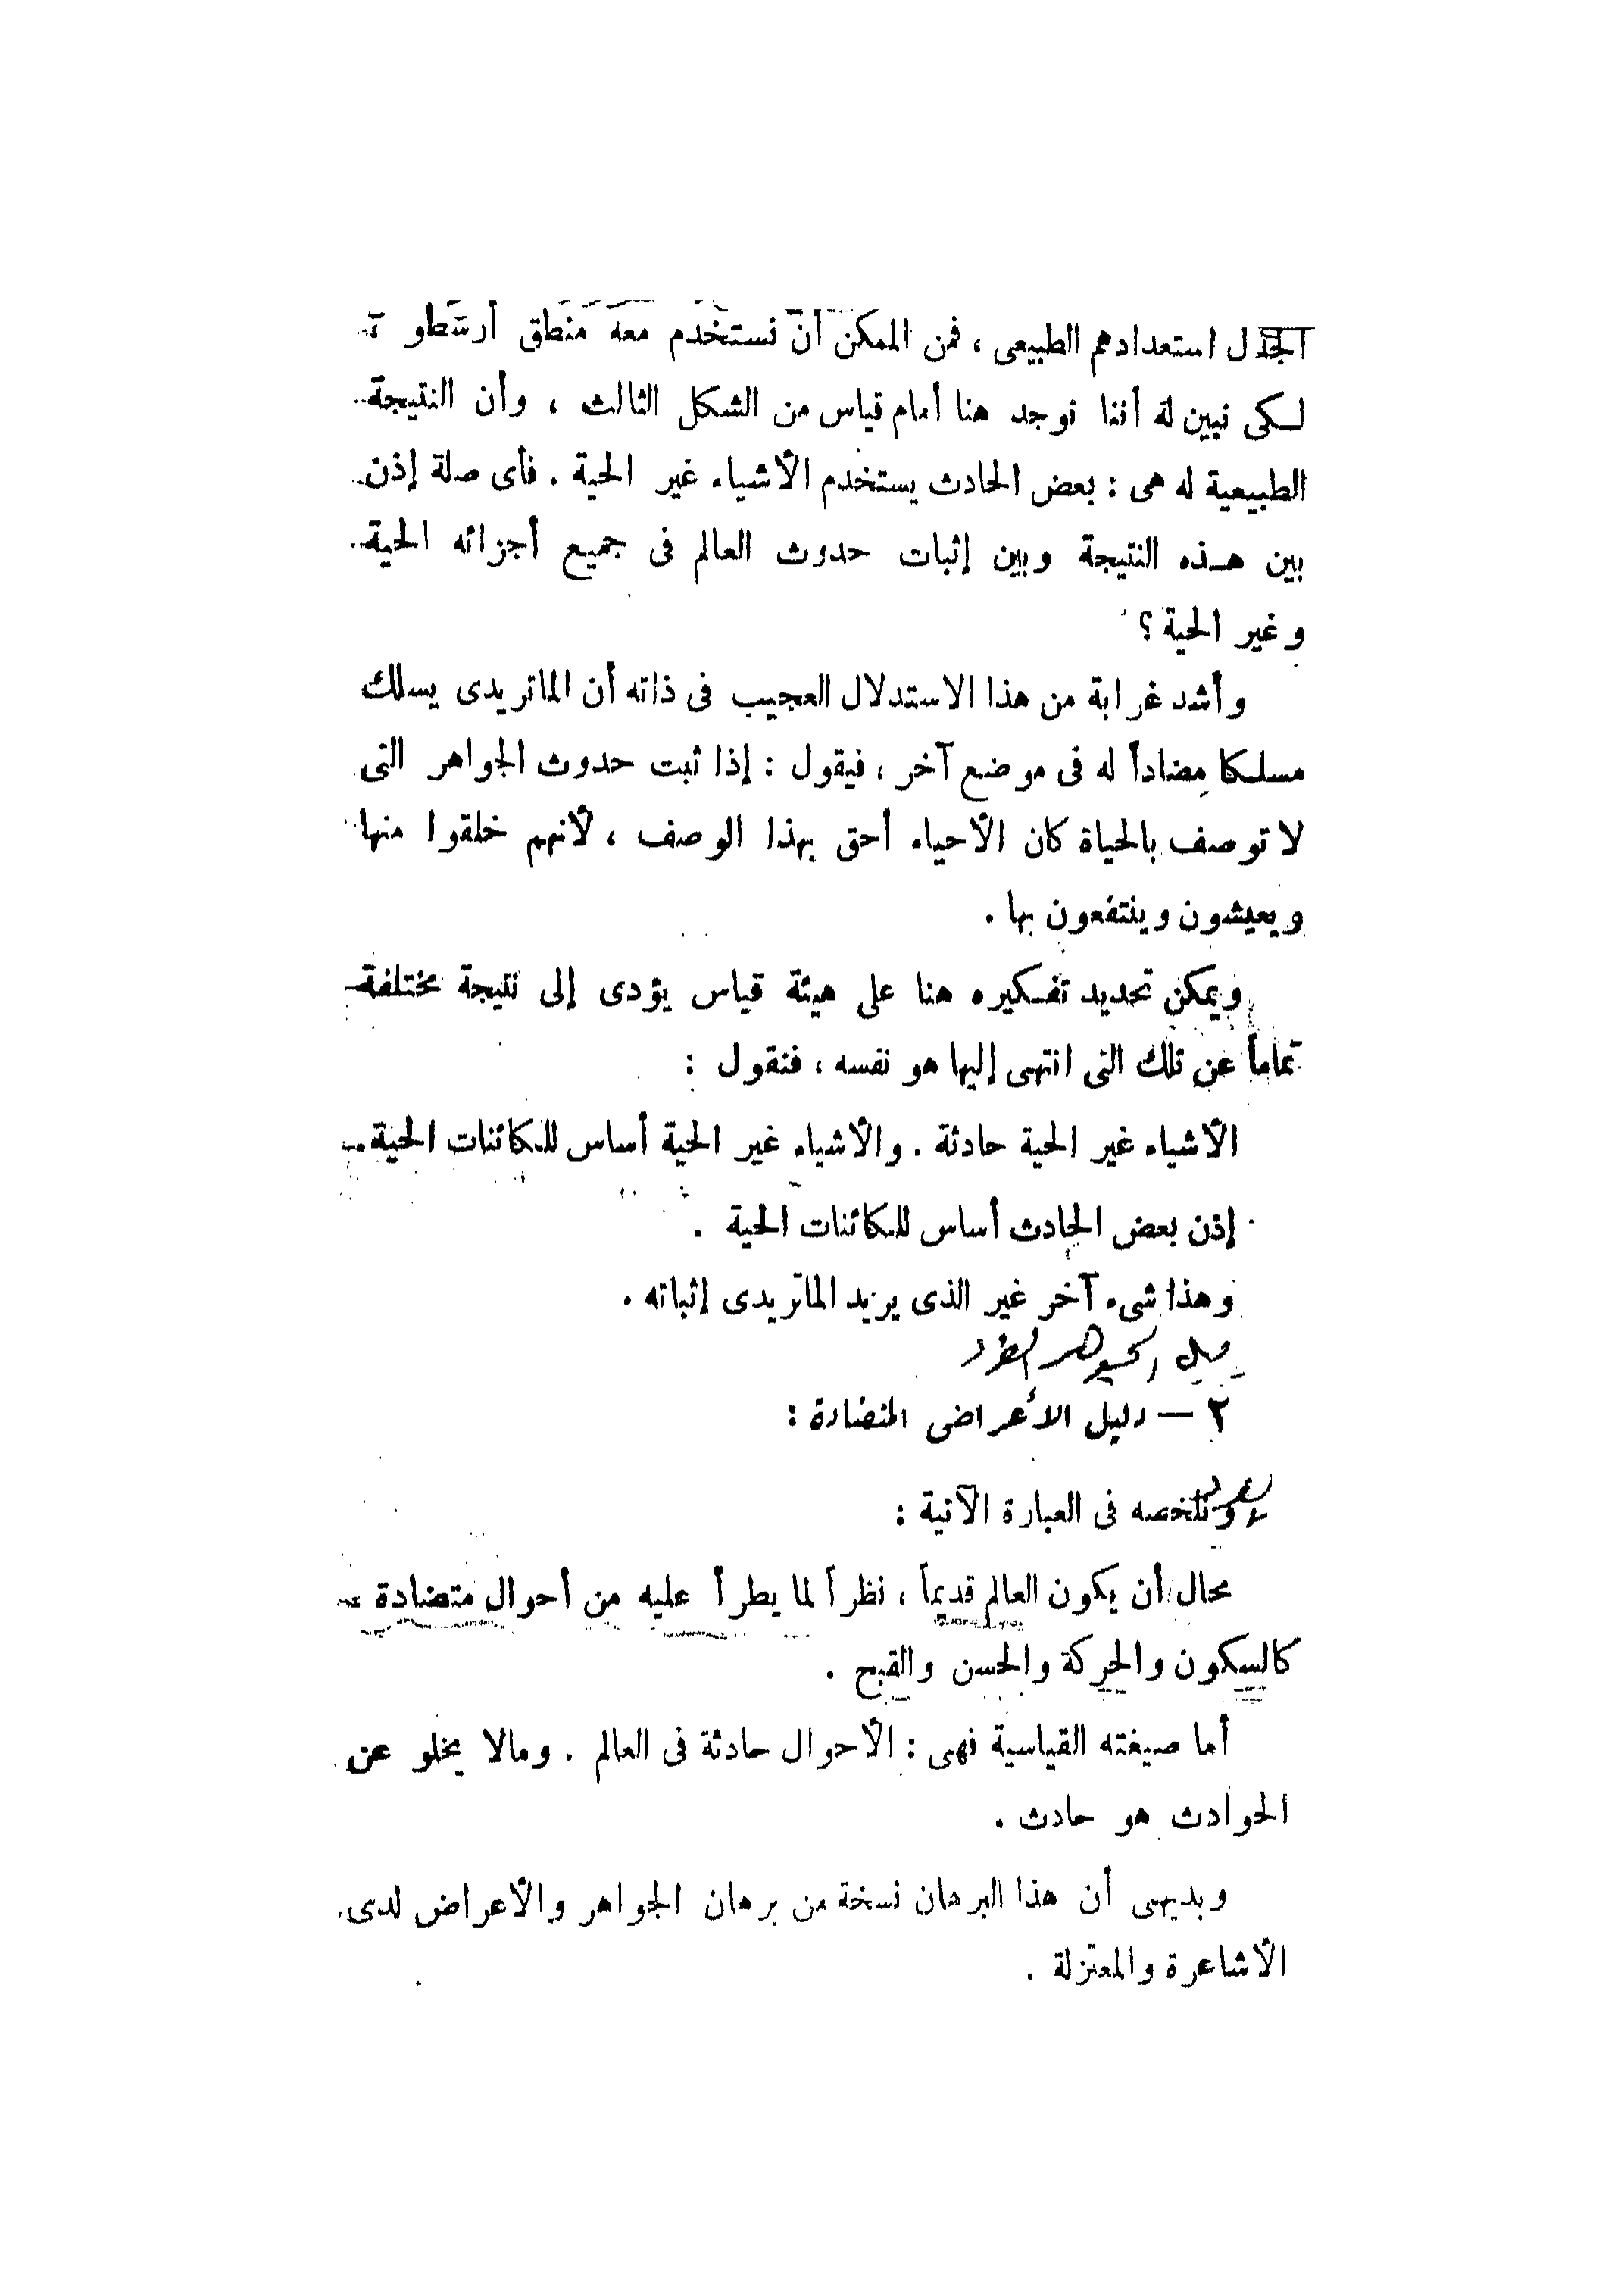 الجدل استعدادهم الطبيعى ، فمن الممكن أن نستخدم معه منطق أرسطو
لكى نبين له أننا نوجد هنا أمام قياس من الشكل الثالث ، وأن النتيجة
الطبيعية له هى : بعض الحادث يستخدم الأشياء غير الحية . فأى صلة إذن
بين هذه النتيجة وبين إثبات حدوث العالم فى جميع أجزائه الحية
وغير الحية ؟
وأشد غرابة من هذا الاستدلال العجيب فى ذاته أن الماتريدى يسلك
مسلكا مضاداً له فى موضع آخر ، فيقول : إذا ثبت حدوث الجواهر التى
لا توصف بالحياة كان الأحياء أحق بهذا الوصف ، لأنهم خلقوا منها
ويعيشون وينتفعون بها .
ويمكن تحديد تفكيره هنا على هيئة قياس يؤدى إلى نتيجة مختلفة
تماماً عن تلك التى انتهى إليها هو نفسه ، فنقول :
الأشياء غير الحية حادثة . والأشياء غير الحية أساس للكائنات الحية
إذن بعض الحادث أساس للكائنات الحية .
وهذا شىء آخر غير الذى يريد الماتريدى إثباته .
الجوهر الفرد
٢ — دليل الأعراض المتضادة :
ونلخصه فى العبارة الآتية :
محال أن يكون العالم قديماً ، نظراً لما يطرأ عليه من أحوال متضادة
كالسكون والحركة والحسن والقبح .
أما صيغته القياسية فهى : الأحوال حادثة فى العالم . ومالا يخلو عن
الحوادث هو حادث .
وبديهى أن هذا البرهان نسخة من برهان الجواهر والأعراض لدى
الأشاعرة والمعتزلة .